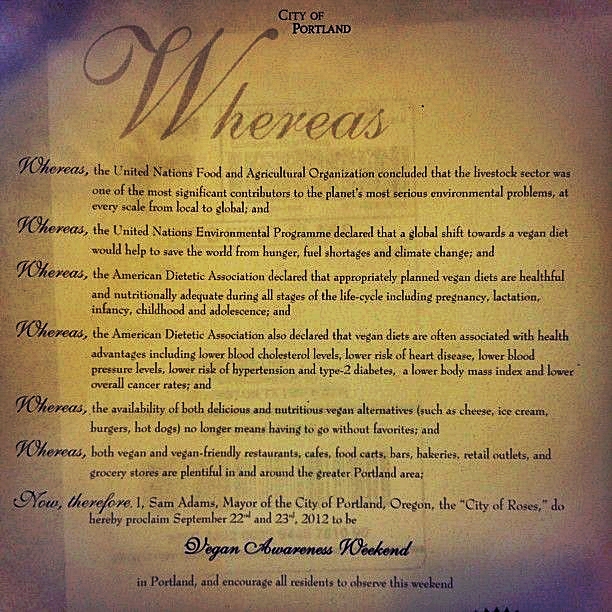 City of
Portland
Whereas
Whereas, the United Nations Food and Agricultural Organization concluded that the livestock sector was
one of the most significant contributors to the planet's most serious environmental problems, at
every scale from local to global; and
Whereas, the United Nations Environmental Programme declared that a global shift towards a vegan diet
would help to save the world from hunger, fuel shortages and climate change; and
Whereas, the American Dietetic Association declared that appropriately planned vegan diets are healthful
and nutritionally adequate during all stages of the life-cycle including pregnancy, lactation,
infancy, childhood and adolescence; and
Whereas, the American Dietetic Association also declared that vegan diets are often associated with health
advantages including lower blood cholesterol levels, lower risk of heart disease, lower blood
pressure levels, lower risk of hypertension and type-2 diabetes, a lower body mass index and lower
overall cancer rates; and
Whereas, the availability of both delicious and nutritious vegan alternatives (such as cheese, ice cream,
burgers, hot dogs) no longer means having to go without favorites; and
Whereas, both vegan and vegan-friendly restaurants, cafes, food carts, bars, bakeries, retail outlets, and
grocery stores are plentiful in and around the greater Portland area;
Now, therefore, I, Sam Adams, Mayor of the City of Portland, Oregon, the "City of Roses," do
hereby proclaim September 22nd and 23rd, 2012 to be
Vegan Awareness Weekend
in Portland, and encourage all residents to observe this weekend